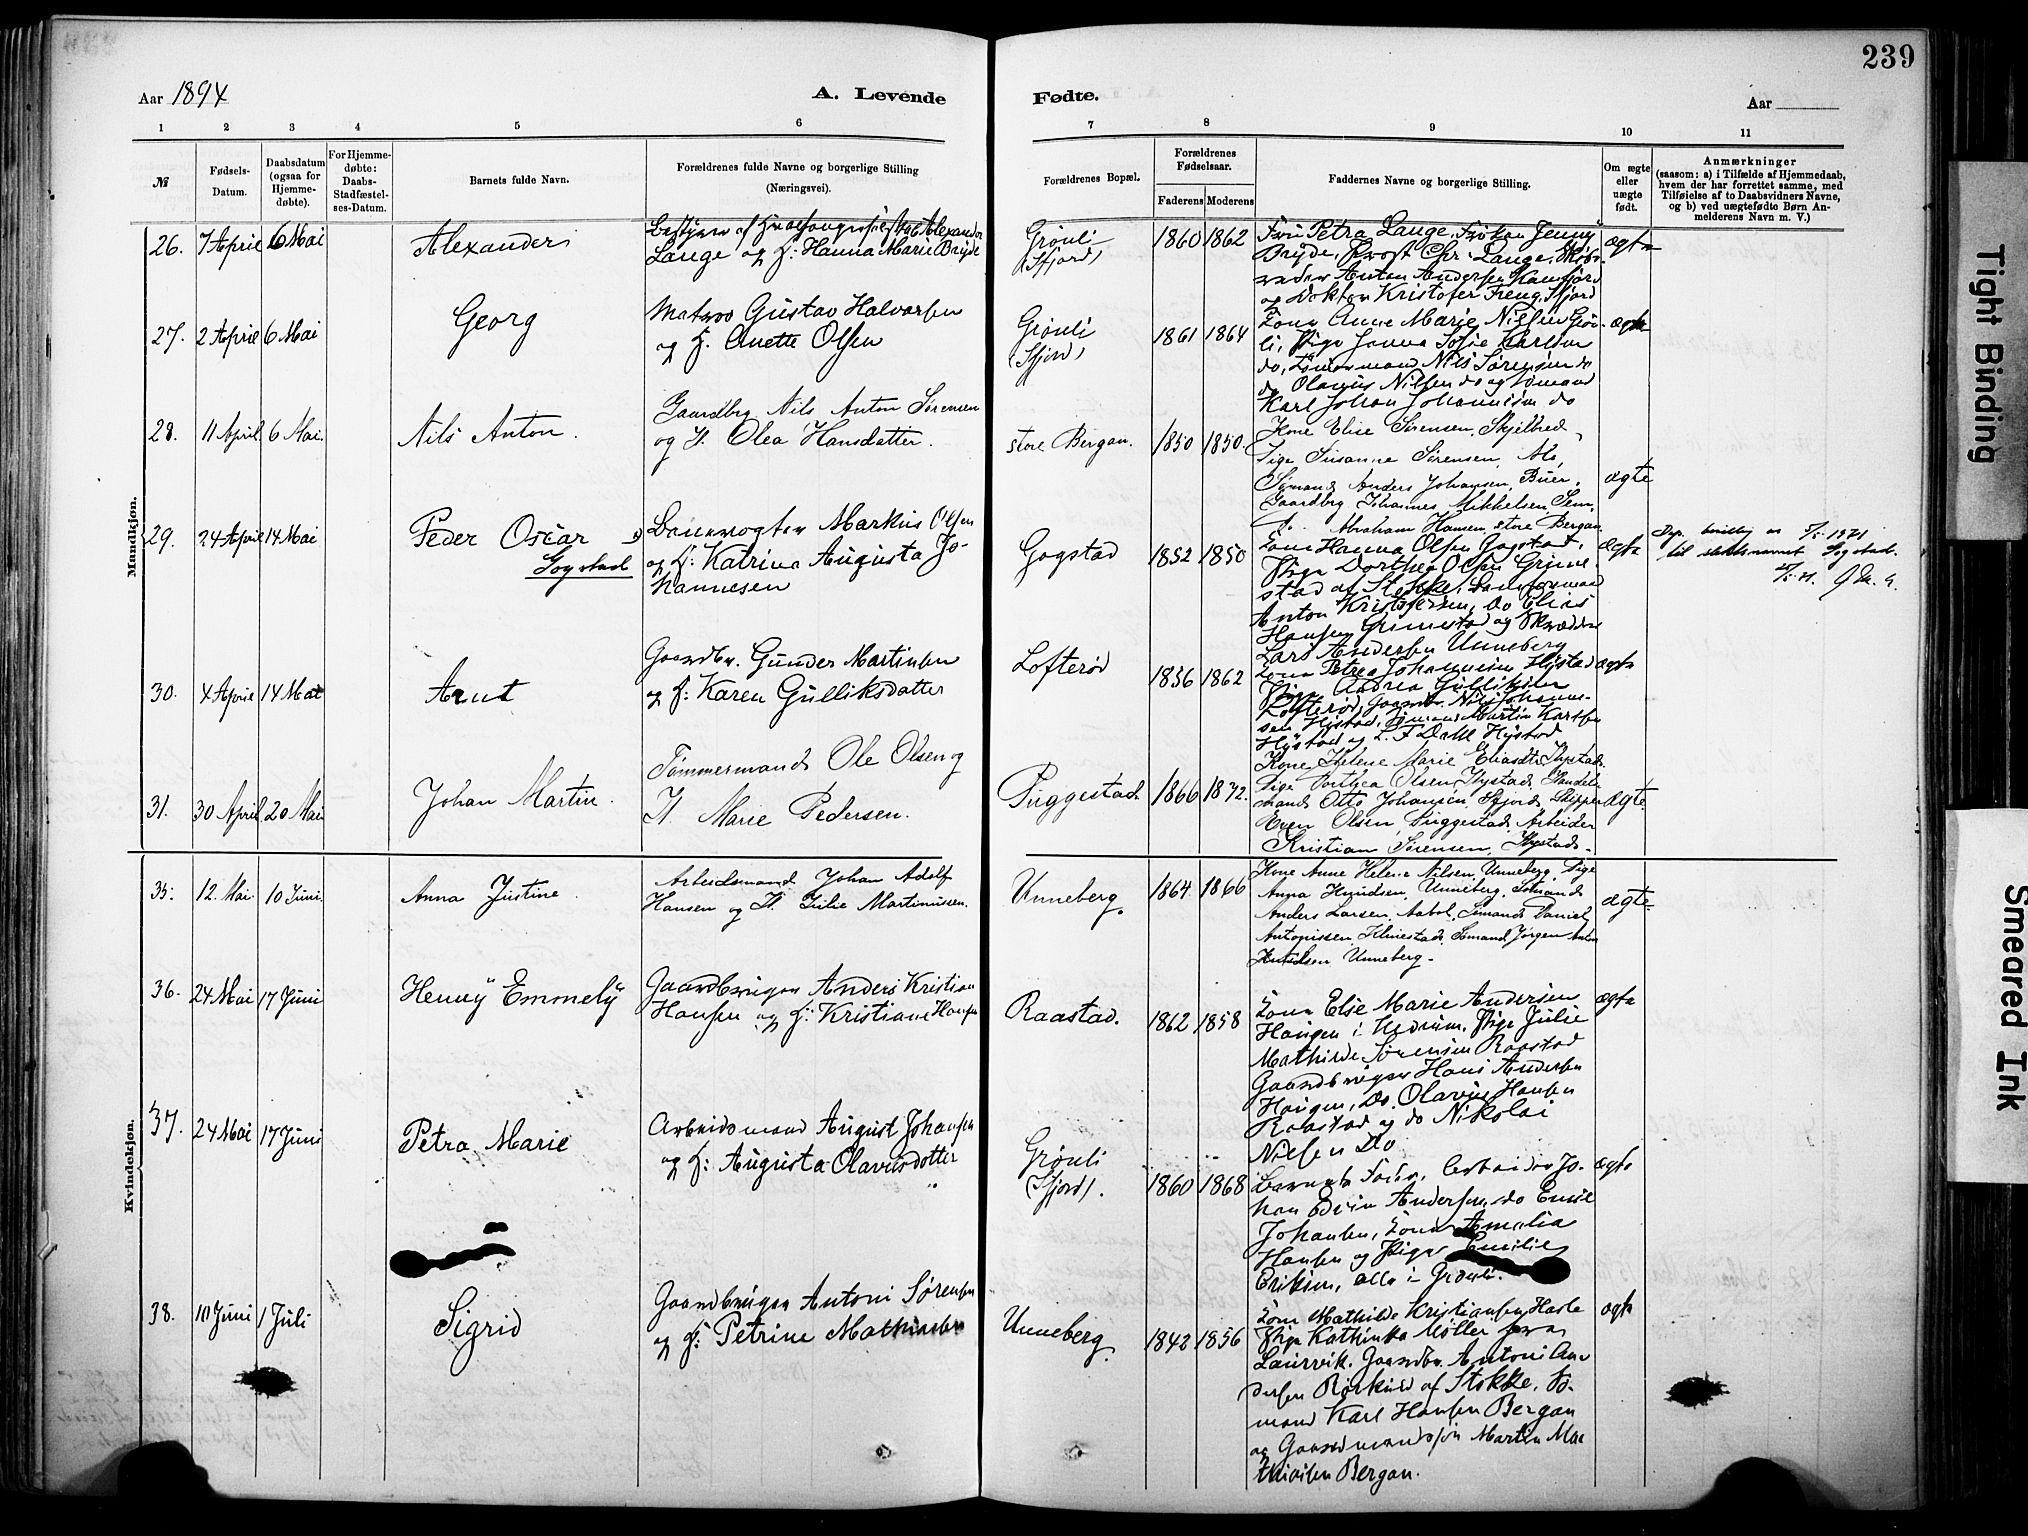 239
Aar 1894
A. Levende
Fødte.
Aar
1 2 3 4 5 6 7 8 9 10 11
№
Fødsels-
Datum.
Daabsdatum
(ogsaa for
Hjemme-
døbte).
For Hjemme-
døbte:
Daabs-
Stadfæstel-
ses-Datum.
Barnets fulde Navn.
Forældrenes fulde Navne og borgerlige Stilling
(Næringsvei).
Forældrenes Bopæl.
Forældrenes
Fødselsaar.
Faderens Moderens
Faddernes Navne og borgerlige Stilling.
Om ægte
eller
uægte
født.
Anmærkninger
(saasom: a) i Tilfælde af Hjemmedaab,
hvem der har forrettet samme, med
Tilføielse af to Daabsvidners Navne,
og b) ved uægtefødte Børn An-
melderens Navn m. V.)
Mandkjøn.
26. 7 April 6 Mai
Alexander
Alexander
Lange og H: Hanna Marie Bryde
Grønli
(Sfjord)
1860 1862
Fru Petra Lange, Frøken Jenny
Bryde, Provst Chr. Lange,
Anton Andersen
og Doktor Kristofer Freng, Sfjord
ægte
27. 2 April 6 Mai
Georg
Matros Gustav Halvorsen
og H. Anette Olsen
Grønli
(Sfjord)
1861 1864
Kone Anne Marie Nilsen Grøn-
li, Pige Sofie Karlsen
do, Tømmermand Nils Sørensen do
do Olanus Nilsen do og Sømand
Karl Johan Johannesen do
ægte
28. 11 April 6 Mai.
Nils Anton.
Gaardbrg Nils Anton Sørensen
og H. Olea Hansdatter.
store Bergan.
1850 1850.
Kone Elise Sørensen, Skjelbred,
Pige Susanne Sørensen,
Sømand Anders Johansen, Buer,
Gaardbrg Johannes Mikkelsen, Sem,
do Abraham Hansen store Bergan
ægte
29. 24 April 14 Mai
Peder Oscar
Gogstad
Banevogter Markus Olsen
og H: Katrina Augusta Jo-
hannesen
Gogstad
1852 1850
Kone Hanna Olsen Gogstad,
Pige Dorthea Olsen Grime-
stad af Stokke,
Anton Kristofersen, do Elias
Hansen Grimestad og Skrædder
Lars Andersen Unneberg
ægte
til slektsnavnet Gogstad.
30. 4 April 14 Mai
Arnt
Gaardbr. Gunder Martinsen
og H: Karen Gulliksdatter
Lofterød
1856 1862
Kone Petrea Johannesen Hystad
Pige Andrea Gulliksen
Lofterød, Gaardbr. Nils Johannes-
sen Hystad, Sømand Martin Karlsen
Hystad og L. F. Dahl Hystad
ægte
31. 30 April 20 Mai
Johan Martin.
Tømmermand Ole Olsen og
H. Marie Pedersen.
Puggestad.
1866 1872.
Kone Helene Marie Eliasdtr Hystad.
Pige Olsen, Hystad, Handels-
mand Otto Johansen, Sfjord, Skipper
Even Olsen, Puggestad, Arbeider
Kristian Sørensen, Hystad.
ægte.
Kvindekjøn.
35. 12. Mai. 10 Juni.
Anna Justine.
Arbeidsmand Johan Adolf
Hansen og H. Julie Martinussen.
Unneberg.
1864 1866
Kone Anne Helene Nilsen, Unneberg, Pige
Anna Knudsen, Unneberg, Sømand
Anders Larsen, Aabol, Sømand Daniel
Antonissen, Klinestad, Sømand Jørgen Anton
Knudsen, Unneberg.
ægte.
36. 24 Mai 17 Juni
Henny Emmely
Gaardbruger Anders Kristian
Hansen og H: Kristiane Hansen
Raastad.
1862 1858
Kone Else Marie Andersen
Haugen i Hedrum, Pige Julie
Mathilde Sørensen Raastad
Gaardbruger Hans Andersen
Haugen, Do. Olavus Hansen
Raastad og do Nikolai
Nielsen Do
ægte
37. 24 Mai 17 Juni
Petra Marie
Arbeidsmand August Johansen
og H: Augusta Olavusdotter
Grønli
(Sfjord).
1860 1868
Barnets Fader, Arbeider Jo-
han Edvin Andersen, do Emil
Johansen, Kone Amalia
Hansen og Pige Emilie
Eriksen, alle i Grønli.
ægte
38. 10 Juni 1 Juli
Sigrid
Gaardbruger Antoni Sørensen
og H: Petrine Mathisen
Unneberg.
1842 1856
Kone Mathilde Kristiansen, Hasle
Pige Kathinka Møller fra
Laurvik. Gaardbr. Antoni An-
dersen Rørkold af Stokke, Sø-
mand Karl Hansen Bergan
og Gaardmandssøn Martin Ma-
thisen Bergan.
ægte
Tight Binding
Smeared Ink